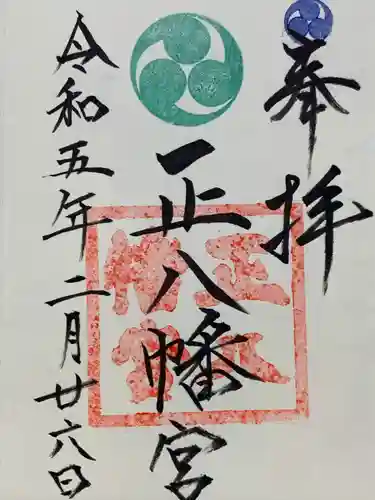 奉拝
正八幡宮
令和五年二月廿六日